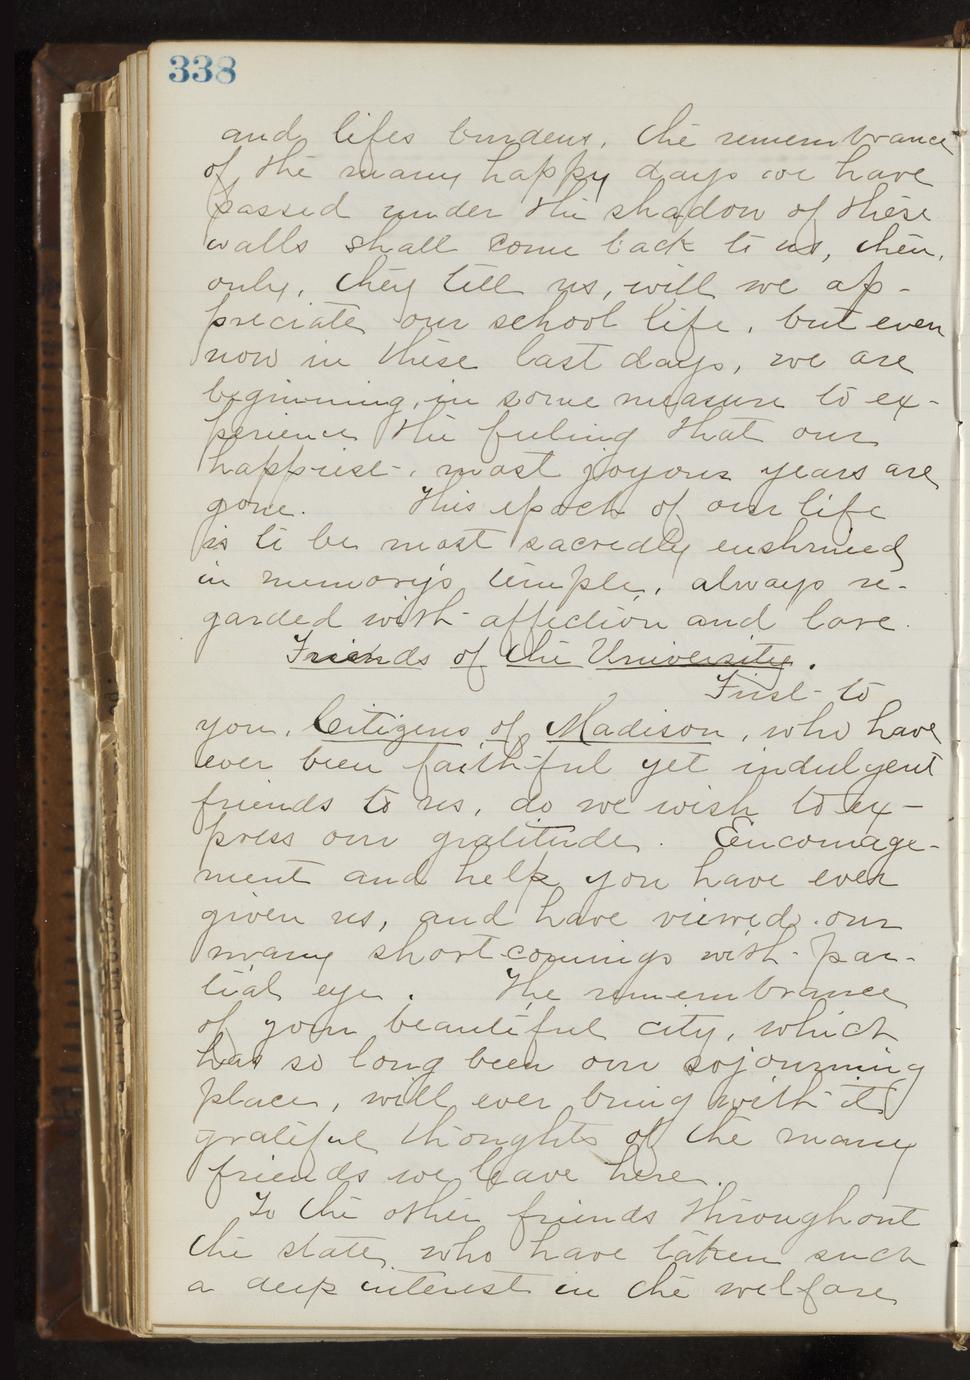 338
and lifes burdens, the remembrance
of the many happy days we have
passed under the shadow of these
walls shall come back to us, then,
only, they tell us, will we ap-
preciate our school life, but even
now in these last days, we are
beginning, in some measure to ex-
perience the feeling that our
happiest, most joyous years are
gone. This epoch of our life
is to be most sacredly enshrined
in memory's temple, always re-
garded with affection and love.
Friends of the University.
First to
you, Citizens of Madison, who have
ever been faithful yet indulgent
friends to us, do we wish to ex-
press our gratitude. Encourage-
ment and help you have ever
given us, and have viewed our
many shortcomings with par-
tial eye. The remembrance
of your beautiful city, which
has so long been our sojourning
place, will ever bring with it
grateful thoughts of the many
friends we leave here.
To the other friends throughout
the state, who have taken such
a deep interest in the welfare